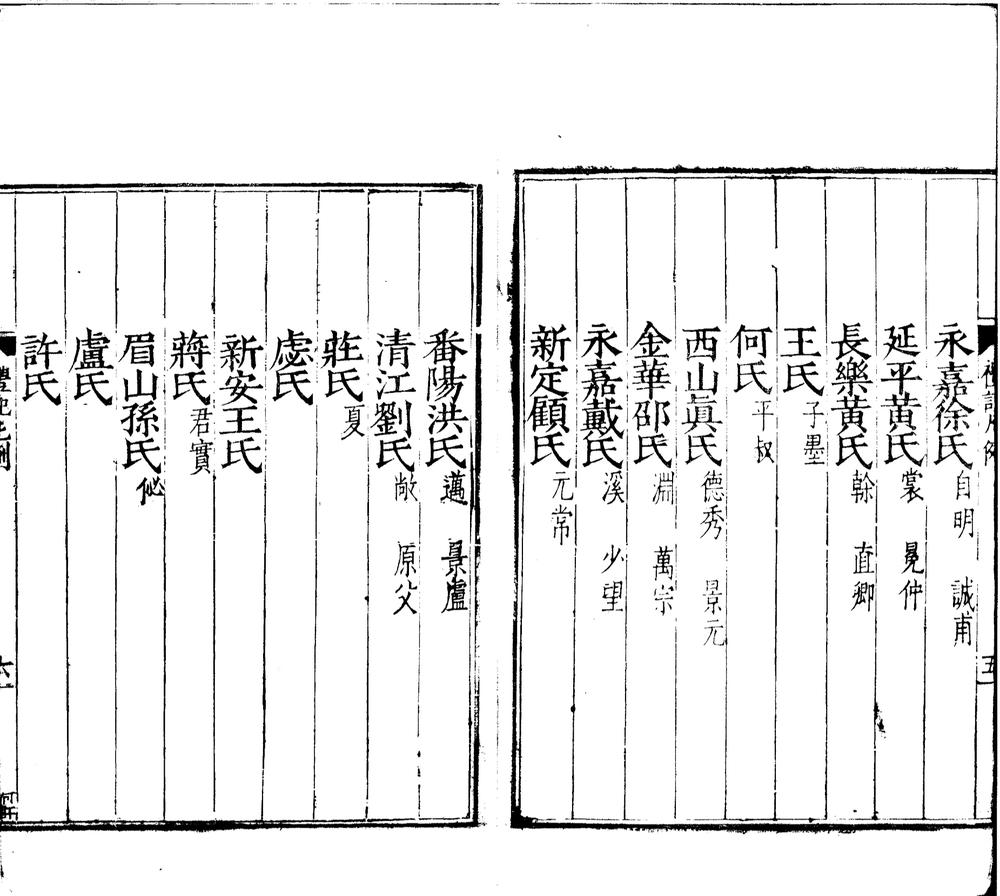 永嘉徐氏自明　誠甫
延平黃氏裳　冕仲
長樂黃氏榦　直卿
王氏子墨
何氏平叔
西山眞氏德秀　景元
金華邵氏淵　萬宗
永嘉戴氏溪　少望
新定顧氏元常
五
番陽洪氏邁　景盧
清江劉氏敞　原父
莊氏夏
處氏
新安王氏
蔣氏君實
眉山孫氏佖
盧氏
許氏
六